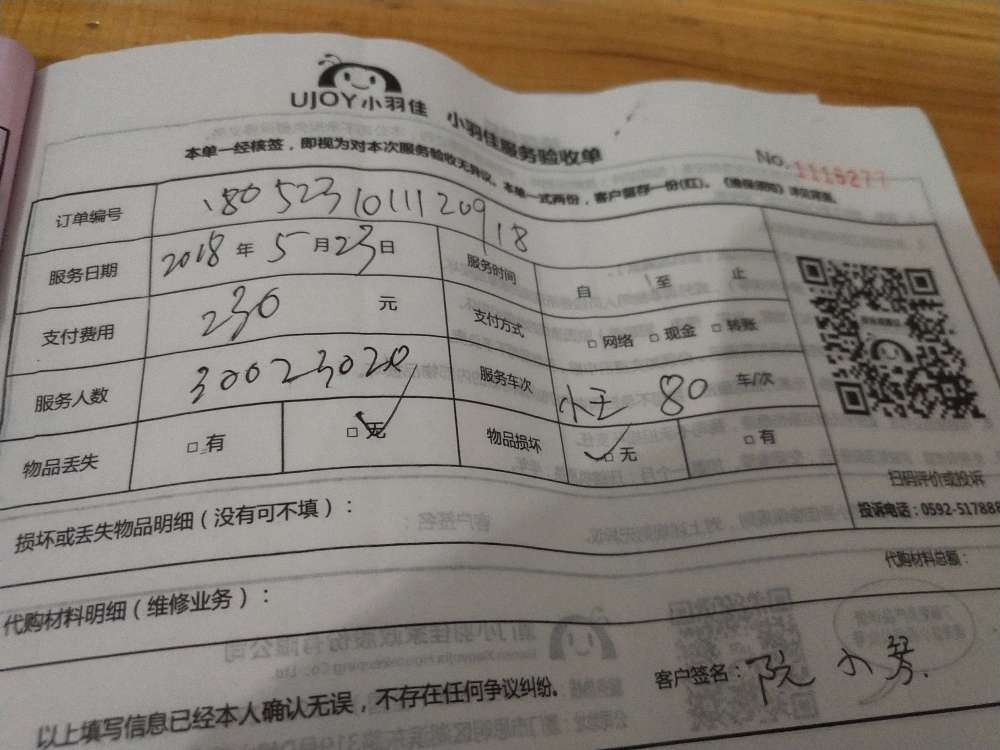 UJOY小羽佳 小羽佳服务验收单
No. 1115277
本单一经核签，即视为对本次服务验收无异议。本单一式两份，客户留存一份(红)。
订单编号 1805231011120918
服务日期 2018 年 5 月 23 日 服务时间 自 至 止
支付费用 230 元 支付方式 □ 网络 □ 现金 □ 转账
服务人数 30023020 服务车次 小王 80 车/次
物品丢失 □ 有 □ 无 物品损坏 □ 无 □ 有
扫码评价或投诉
投诉电话：0592-517888
损坏或丢失物品明细（没有可不填）：
代购材料总额：
代购材料明细（维修业务）：
客户签名：阮小芳
以上填写信息已经本人确认无误，不存在任何争议纠纷。